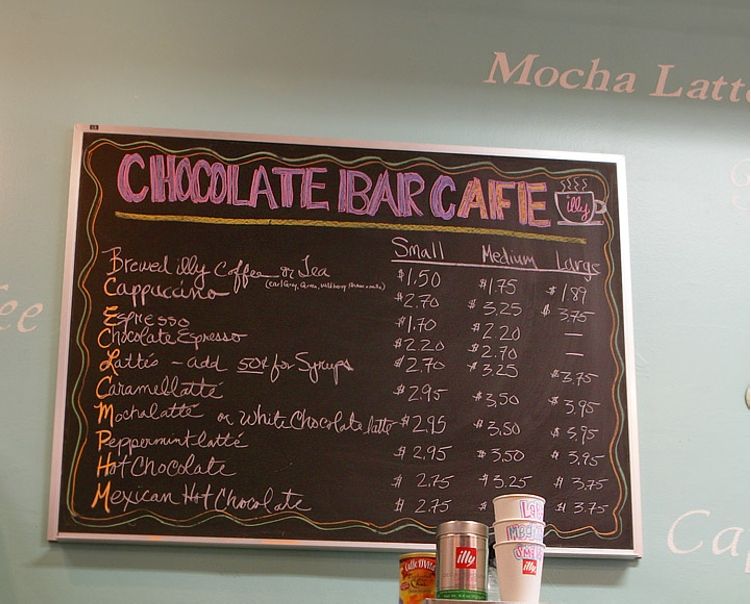 Mocha Latte
CHOCOLATE BAR CAFE illy
Small Medium Large
Brewed illy Coffee or Tea $1.50 $1.75 $1.89
Cappuccino $2.70 $3.25 $3.75
Espresso $1.70 $2.20 —
Chocolate Espresso $2.20 $2.70 —
Lattés - add 50¢ for Syrups $2.70 $3.25 $3.75
Caramel Latté $2.95 $3.50 $3.95
Mocha Latté or White Chocolate latte $2.95 $3.50 $3.95
Peppermint Latté $2.95 $3.50 $3.95
Hot Chocolate $2.75 $3.25 $3.75
Mexican Hot Chocolate $2.75 $3.75
illy
illy